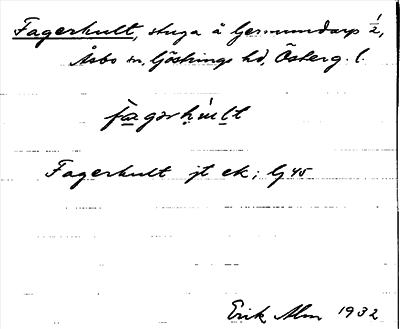 Fagerhult, stuga å Germundarp 1/2,
Åsbo sn, Göstrings hd, Österg. l.
Fagerhult jt ek; Gj 45
Erik Alm 1932